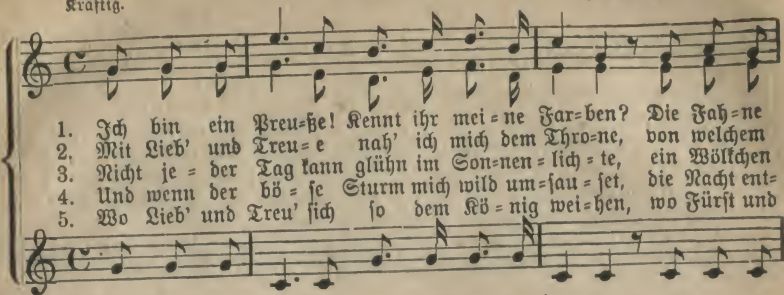 Kräftig.
1. Ich bin ein Preu=ße! Kennt ihr mei=ne Far=ben? Die Fah=ne
2. Mit Lieb' und Treu=e nah' ich mich dem Thro=ne, von welchem
3. Nicht je=der Tag kann glühn im Son=nen=lich=te, ein Wölkchen
4. Und wenn der bö=se Sturm mich wild um=sau=set, die Nacht ent=
5. Wo Lieb' und Treu' sich so dem Kö=nig wei=hen, wo Fürst und